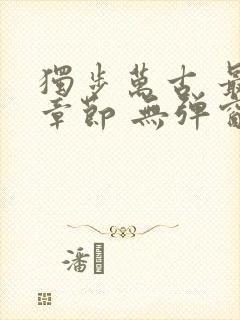 獨步萬古 最
章節 無彈窗
潘